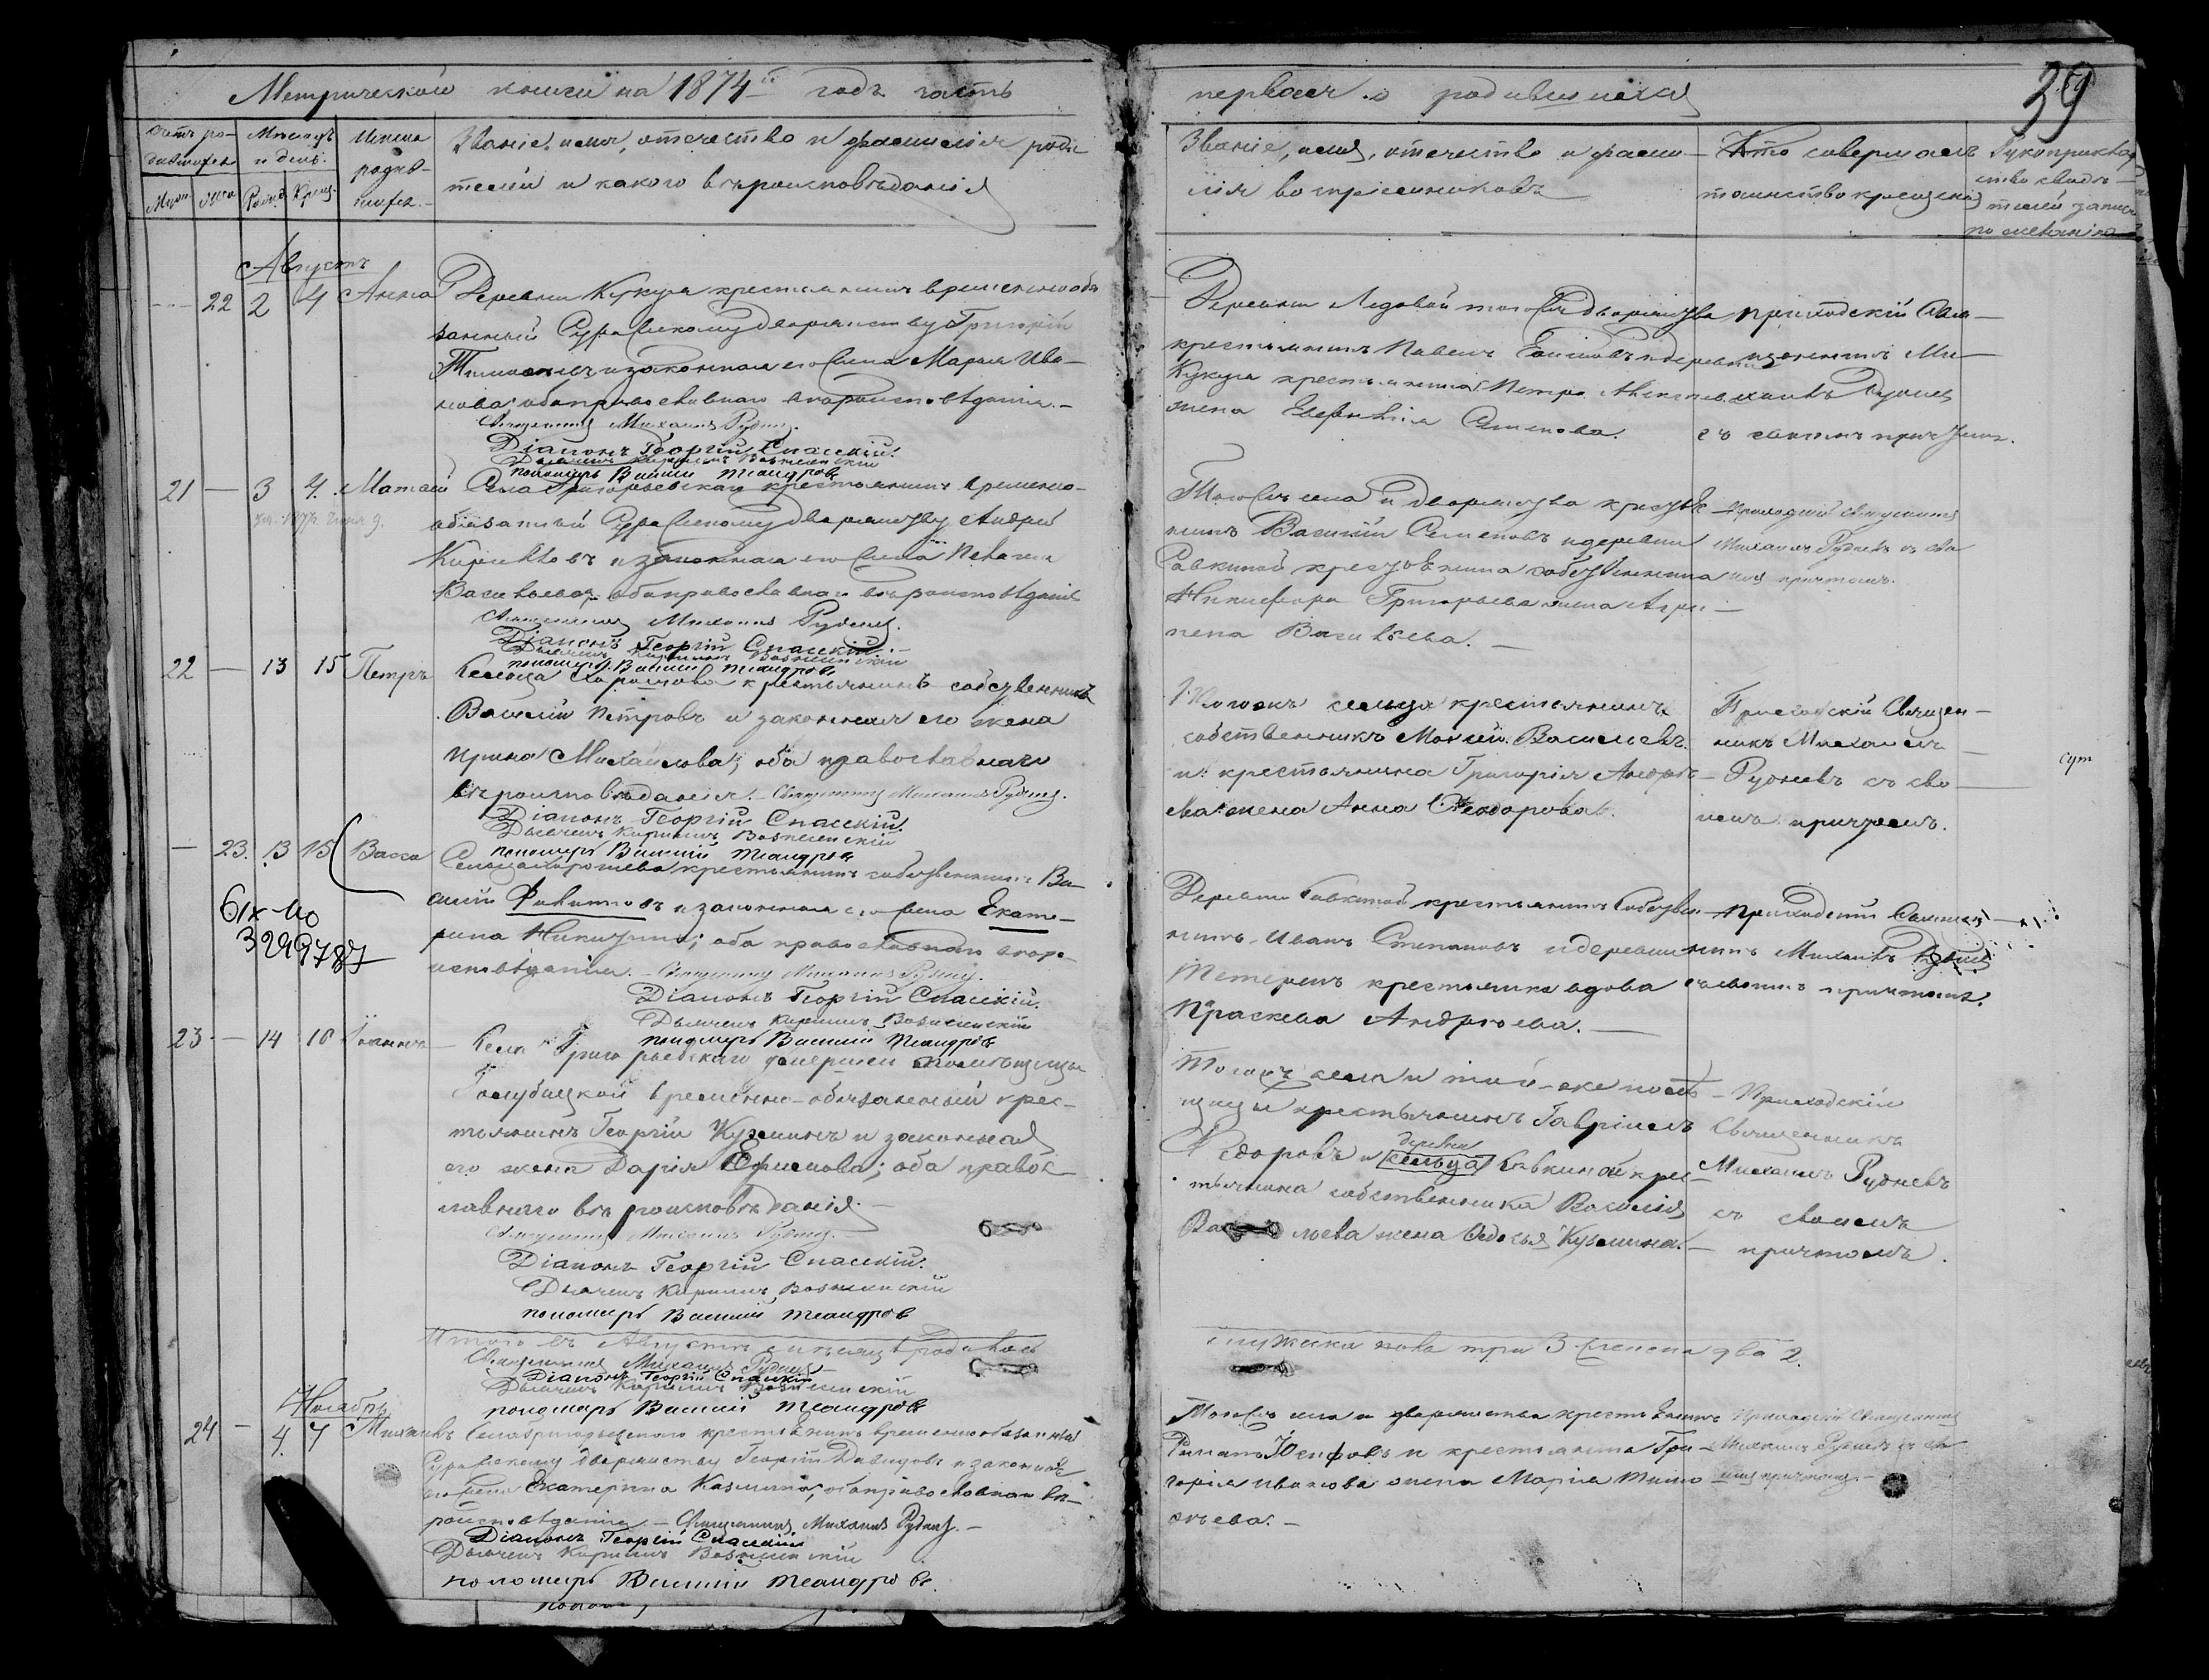 Метрической книги на 1874й годъ часть
первая о родившихся
39
Счетъ ро-
дившихся
Мѣсяцъ
и день.
Имена
родив-
шихся.
Званіе, имя, отчество и фамилія роди
телей и какого вѣроисповѣданія
Муж.
Жен.
Рожд.
Крещ.
Званіе, имя, отчество и фами-
лія воспріемниковъ
Кто совершалъ
таинство крещенія
Рукоприклад
ство свидѣ-
телей записи
по желанію
Августъ
22 2 4 Анна Деревни Кукуя крестьянинъ временнообя
занный дворянству Григорій
и законная его жена Марья Ива-
нова оба православнаго вѣроисповѣданія.-
Священникъ Михаилъ Рудневъ.
Діаконъ Георгій Спасскій.
Дьячекъ Кириллъ Вознесенскій
пономарь Василій Теандровъ
Деревни Ледовой того же дворянства
крестьянинъ Павелъ и деревни
Кукуя крестьянина Петра
жена Семенова.
приходскій Свя-
щенникъ Ми-
хаилъ Рудневъ
съ своимъ причтомъ.
21 — 3 4. Матѳей Села Григорьевскаго крестьянинъ временно-
обязанный дворянству Андрей
и законная его жена Пелагея
Васильева, оба православнаго вѣроисповѣданія
Священникъ Михаилъ Рудневъ.
Діаконъ Георгій Спасскій.
Дьячекъ Кириллъ Вознесенскій
пономарь Василій Теандровъ
Того же села и дворянства крестья
нинъ Василій Семеновъ и деревни
Савкиной крестьянина собственника
Никифора Григорьева жена Агри-
пена Васильева.-
Приходскій священникъ
Михаилъ Рудневъ съ сво
имъ причтомъ.
22 — 13 15 Петръ Сельца Хорошова крестьянинъ собственникъ
Василій Петровъ и законная его жена
Ирина Михайлова; оба православнаго
вѣроисповѣданія.- Священникъ Михаилъ Рудневъ.
Діаконъ Георгій Спасскій.
Дьячекъ Кириллъ Вознесенскій
пономарь Василій Теандровъ
Тогожъ сельца крестьянинъ
собственникъ Васильевъ.
и крестьянина Григорія Андрѣ-
ева жена Анна Ѳеодорова.
Приходскій Священ-
никъ Михаилъ
Рудневъ съ сво
имъ причтомъ.
— 23. 13 15 Васса Сельца Хорошева крестьянинъ собственникъ Ва-
силій и законная его жена Екате-
рина Никитина; оба православнаго вѣро-
исповѣданія.- Священникъ Михаилъ Рудневъ.
Діаконъ Георгій Спасскій.
Дьячекъ Кириллъ Вознесенскій
пономарь Василій Теандровъ
3249787
Деревни Савкиной крестьянинъ собствен-
никъ Иванъ Степановъ и деревни
Тетеренъ крестьянка вдова
Праскева Андреева.-
приходскій Священ
никъ Михаилъ Рудневъ
съ своимъ причтомъ.
23 — 14 16 Іоаннъ Села Григорьевскаго имѣнія помѣщицы
Голубицкой временно-обязанный крес-
тьянинъ Георгій Кузминъ и законная
его жена Дарія Ефимова; оба правос
лавнаго вѣроисповѣданія.
Священникъ Михаилъ Рудневъ.
Діаконъ Георгій Спасскій.
Дьячекъ Кириллъ Вознесенскій
пономарь Василій Теандровъ
Тогожъ села и той-же помѣ-
щицы крестьянинъ Гавріилъ
деревни
Ѳедоровъ и сельца Савкиной крес-
тьянина собственника Василія
Васильева жена Ѳедосья Кузмина.-
Приходскій
Священникъ
Михаилъ Рудневъ
съ своимъ
причтомъ.
Итого въ Августѣ мѣсяцѣ родилось
мужеска пола три 3 женска два 2.
Священникъ Михаилъ Рудневъ
Діаконъ Георгій Спасскій
Дьячекъ Кириллъ Вознесенскій
пономарь Василій Теандровъ
Ноябрь
24 — 4. 7 Михаилъ Села Григорьевскаго крестьянинъ временнообязанный
дворянству Георгій Давидовъ и законная
его жена Екатерина Казмина, оба православнаго вѣ-
роисповѣданія — Священникъ Михаилъ Рудневъ.-
Діаконъ Георгій Спасскій
Дьячекъ Кириллъ Вознесенскій
пономарь Василій Теандровъ.
Того же села и дворянства крестьянинъ
и крестьянина Гри-
горія Иванова жена Марія Тимо
ѳѣева.-
Приходскій Священникъ
Михаилъ Рудневъ съ сво
имъ причтомъ.-